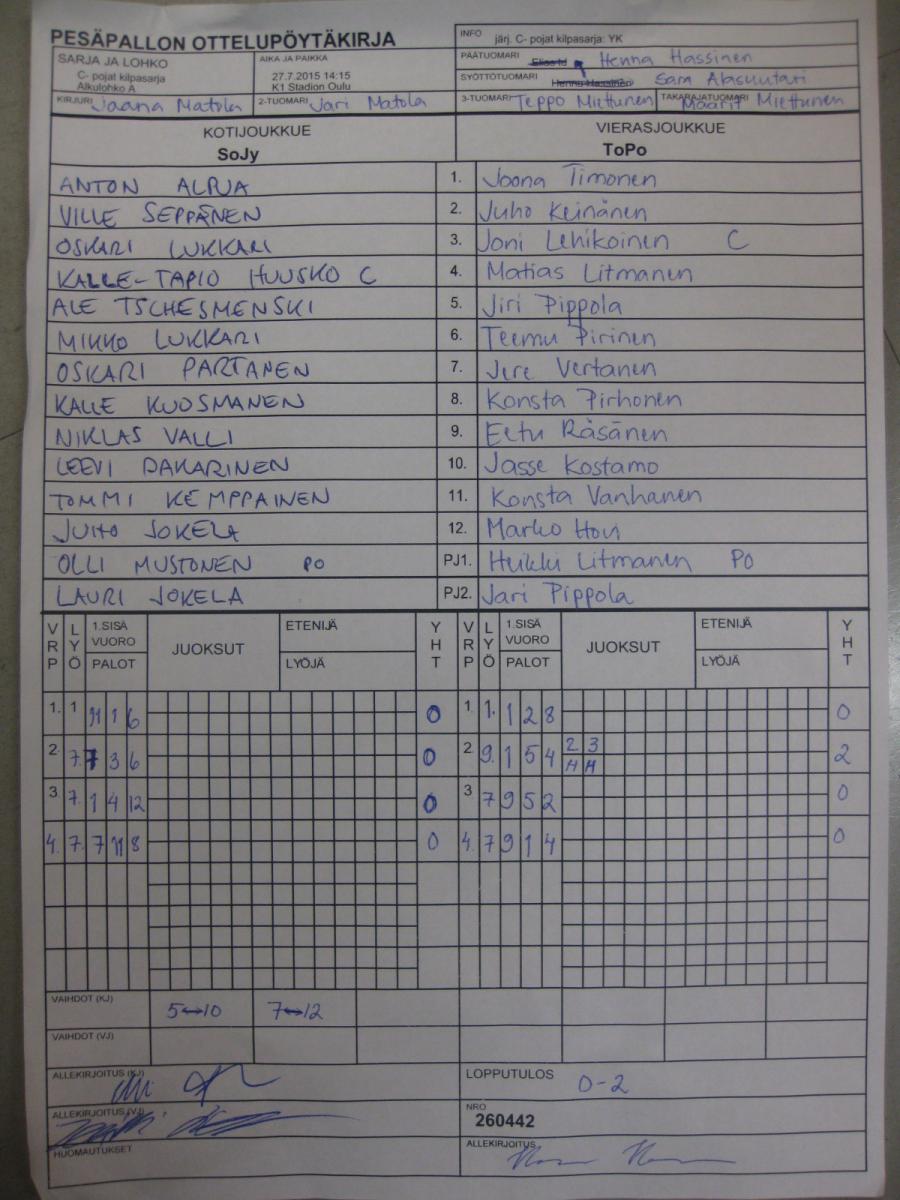 PESÄPALLON OTTELUPÖYTÄKIRJA
INFO järj. C- pojat kilpasarja: YK
SARJA JA LOHKO
C- pojat kilpasarja
Alkulohko A
AIKA JA PAIKKA
27.7.2015 14:15
K1 Stadion Oulu
PÄÄTUOMARI Henna Hassinen
SYÖTTÖTUOMARI Henna Hassinen Sara Alasuutari
KIRJURI Jaana Matola 2-TUOMARI Jari Matola 3-TUOMARI Teppo Miettunen TAKARAJATUOMARI Maarit Miettunen
KOTIJOUKKUE VIERASJOUKKUE
SoJy ToPo
ANTON ALPUA 1. Joona Timonen
VILLE SEPPÄNEN 2. Juho Keinänen
OSKARI LUKKARI 3. Joni Lehikoinen C
KALLE-TAPIO HUUSKO C 4. Matias Litmanen
ALE TSCHESMENSKI 5. Jiri Pippola
MIKKO LUKKARI 6. Teemu Pirinen
OSKARI PARTANEN 7. Jere Vertanen
KALLE KUOSMANEN 8. Konsta Pirhonen
NIKLAS VALLI 9. Eetu Räsänen
LEEVI PAKARINEN 10. Jasse Kostamo
TOMMI KEMPPAINEN 11. Konsta Vanhanen
JUHO JOKELA 12. Marko Hovi
OLLI MUSTONEN PO PJ1. Heikki Litmanen PO
LAURI JOKELA PJ2. Jari Pippola
VRP LYÖ 1.SISÄ VUORO PALOT JUOKSUT ETENIJÄ LYÖJÄ YHT VRP LYÖ 1.SISÄ VUORO PALOT JUOKSUT ETENIJÄ LYÖJÄ YHT
1. 1 11 1 6 0 1. 1. 1 2 8 0
2. 7. 7 3 6 0 2. 9. 1 5 4 2 3 H H 2
3 7. 1 4 12 0 3 7 9 5 2 0
4. 7. 7 11 8 0 4. 7 9 1 4 0
VAIHDOT (KJ) 5↔10 7↔12
VAIHDOT (VJ)
ALLEKIRJOITUS (KJ) LOPPUTULOS 0-2
ALLEKIRJOITUS (VJ) NRO 260442
HUOMAUTUKSET ALLEKIRJOITUS